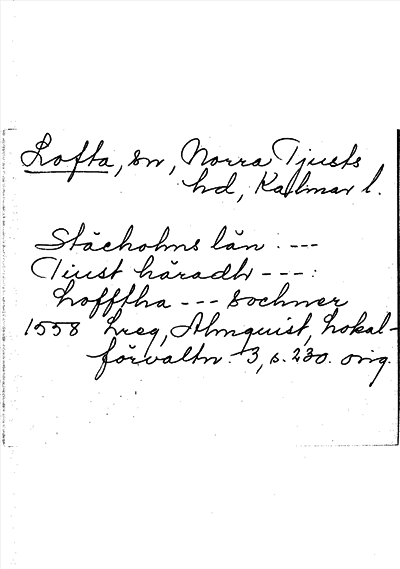 Lofta, sn, Norra Tjusts
hd, Kalmar l.
Stächolms län: ---
Tiust häradh ---:
Lofftha --- sochner
1558 Lreg, Almquist, Lokal-
förvaltn. 3, s. 230. orig.